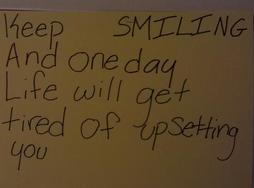 Keep SMILING
And one day
Life will get
tired of upsetting
you